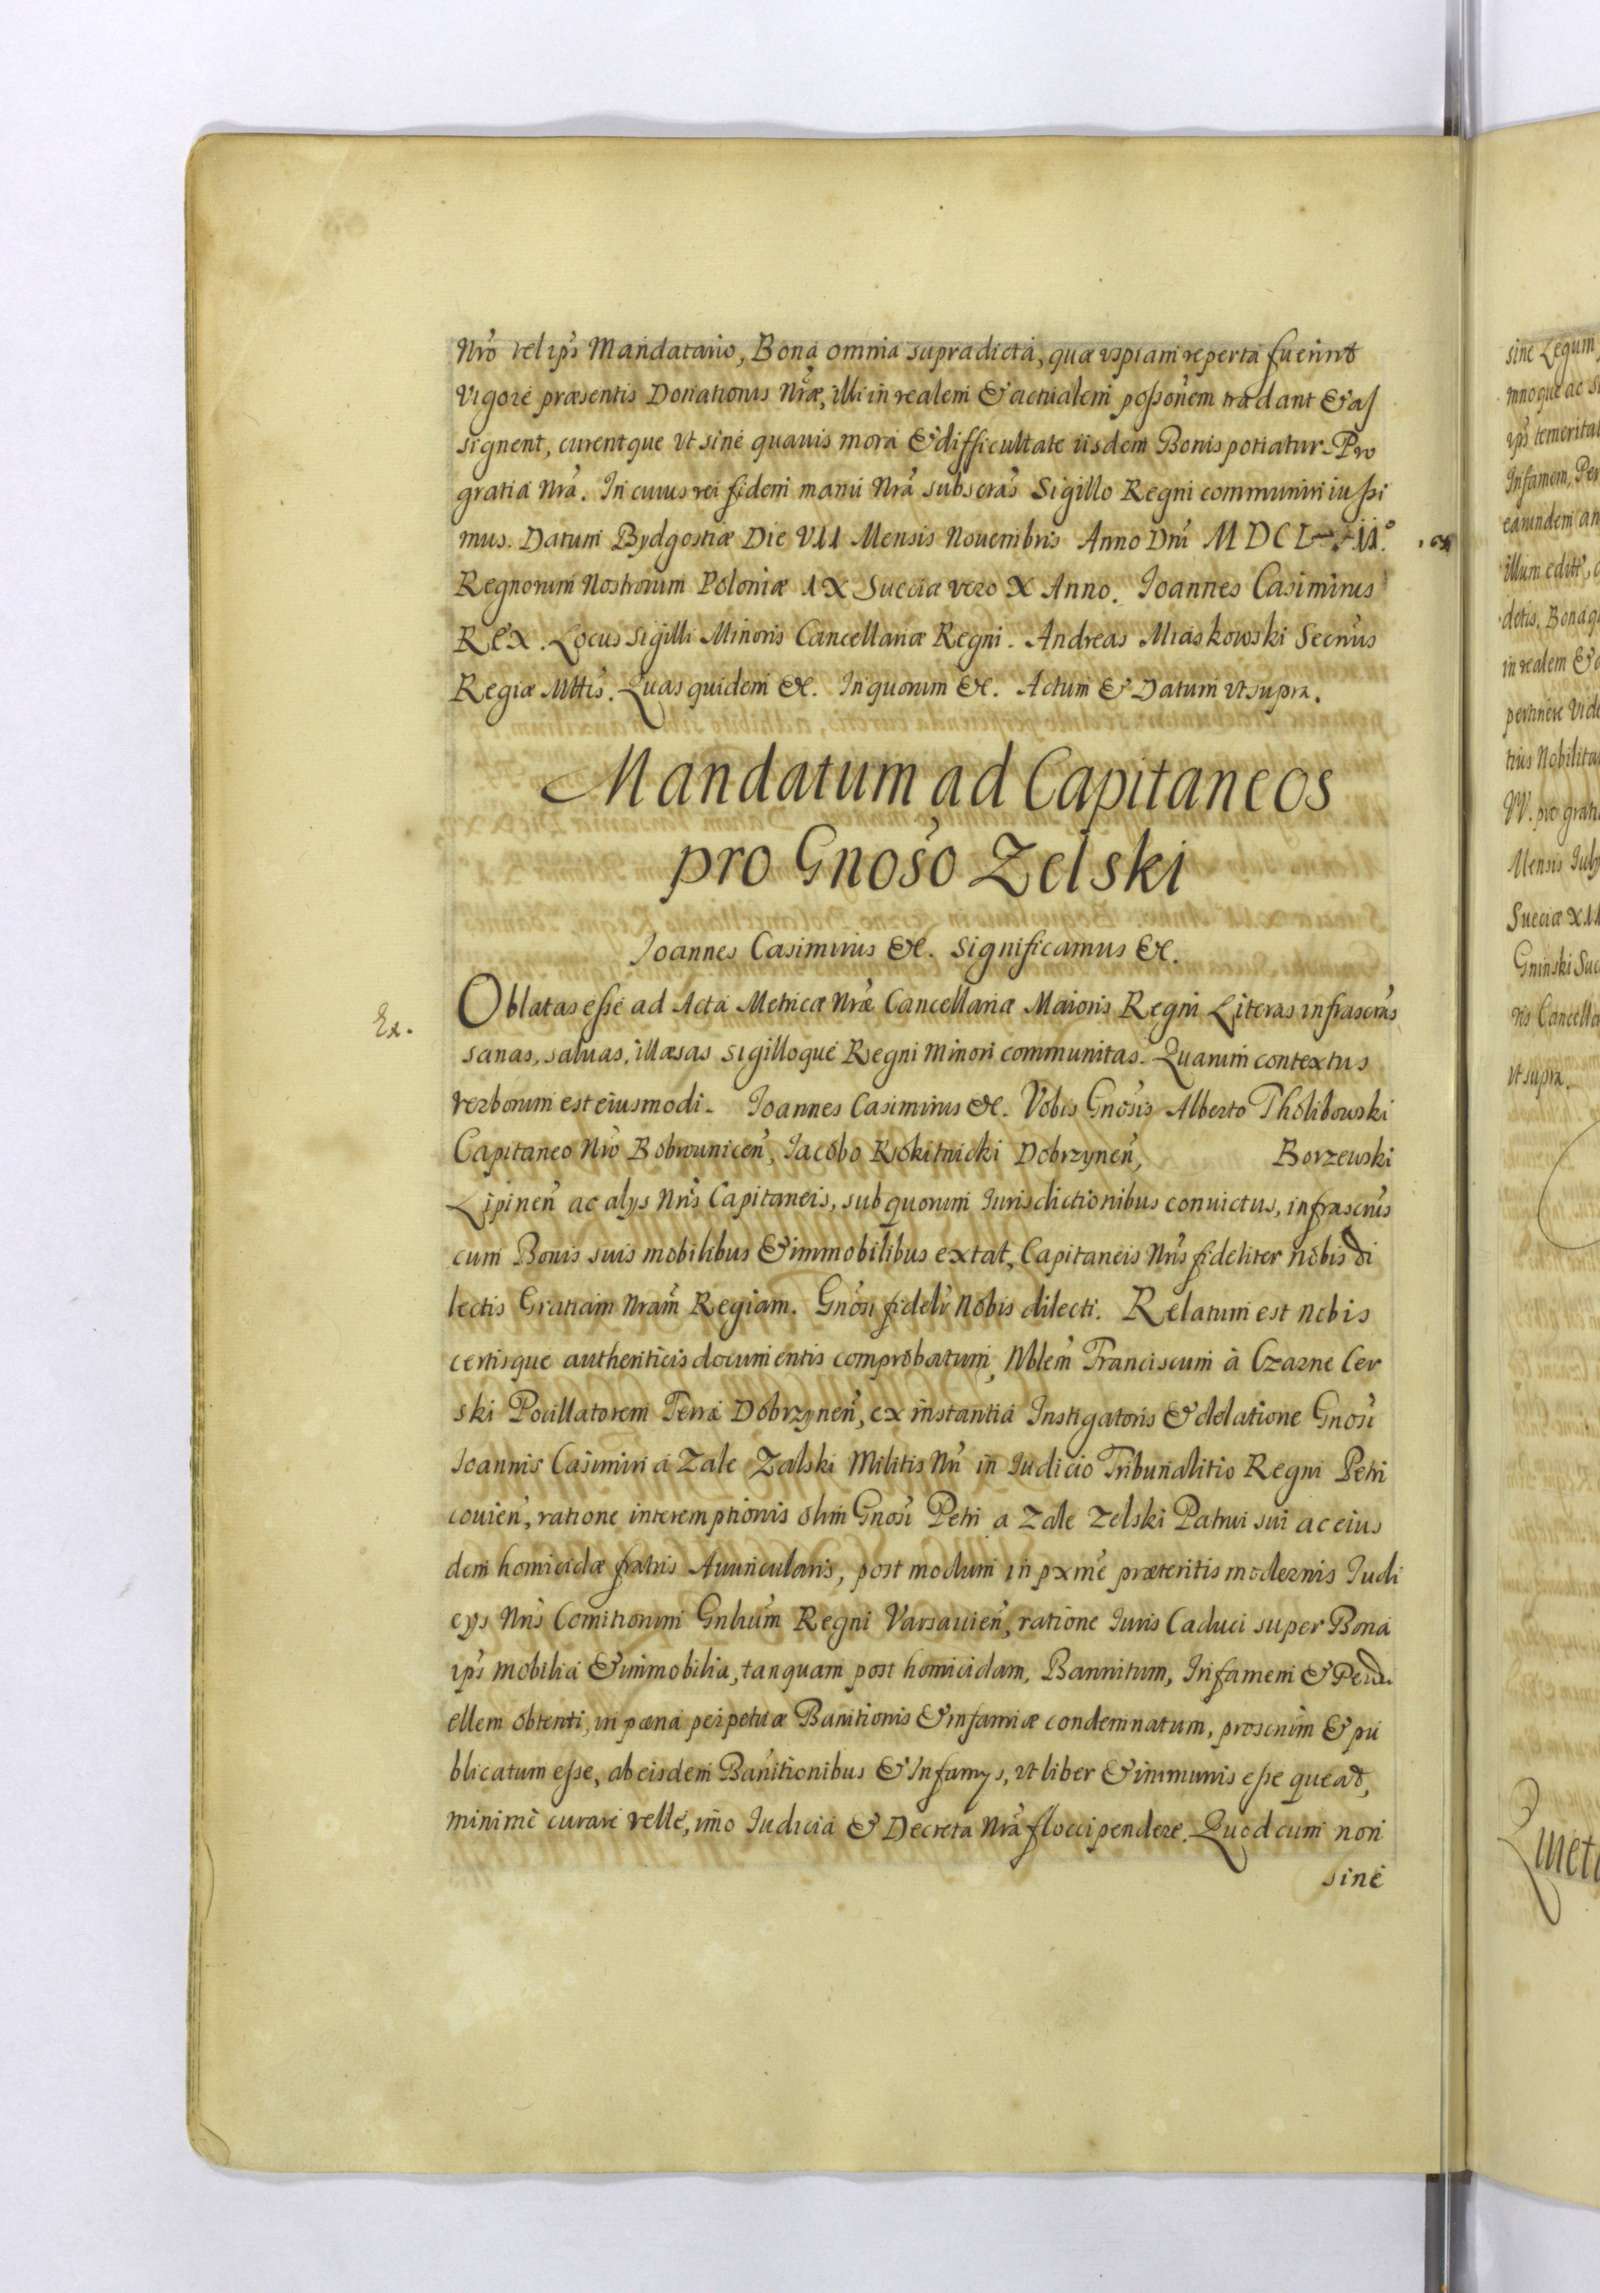 Nrõ vel ips̃ Mandatario, Bona omnia supradicta, quæ uspiam reperta fuerint
Vigore præsentis Donationis Nræ̃, illi in realem & actualem possoñem tradant & as
signent, curentque ut sine quavis mora & difficultate iisdem Bonis potiatur. Pro
gratia Nrã. In cuius rei fidem manu Nrã subscrãs Sigillo Regni communiri iussi
mus. Datum Bydgostiæ Die VII Mensis Novembris Anno Dnĩ MDCL II.º
Regnorum Nostrorum Poloniæ IX Sueciæ vero X Anno. Joannes Casimirus
Rex. Locus Sigilli Minoris Cancellariæ Regni. Andreas Miaskowski Secrñus
Regiæ Mttis̃. Quas quidem &c. In quorum &c. Actum & Datum ut supra.
Mandatum ad Capitaneos
pro Gnoso̊ Zelski
Joannes Casimirus &c. Significamus &c.
Ex.
Oblatas esse ad Acta Metricæ Nræ̃ Cancellariæ Maioris Regni Literas infrascrãs
sanas, salvas, illæsas sigilloque Regni Minori communitas. Quarum contextus
verborum est eiusmodi. Joannes Casimirus &c. Vobis Gnosĩs Alberto Tholibowski
Capitaneo Nrõ Bobrowniceñ, Iacobo Rokitnicki Dobrzyneñ, Borzewski
Lipineñ ac alys Nrĩs Capitaneis, sub quorum Iurisdictionibus convictus, infrascrũs
cum Bonis suis mobilibus & immobilibus extat, Capitaneis Nrĩs fideliter nobis di
lectis Gratiam Nram̃ Regiam. Gnosĩ fidelr̃ Nobis dilecti. Relatum est nobis
certisque authenticis documentis comprobatum, Nblem̃ Franciscum à Czarne Cer
ski Pocillatorem Terræ Dobrzyneñ, ex instantia Instigatoris & delatione Gnosĩ
Joannis Casimiri à Zale Zalski Militis Nrĩ in Iudicio Tribunalitio Regni Petri
covieñ, ratione interemptionis olim Gnosĩ Petri a Zale Zelski Patrui sui ac eius
dem homicidæ fratris Avuncularis, post modum in pxmẽ præteritis modernis Iudi
cys Nrĩs Comitiorum Gnlium̃ Regni Varsavieñ, ratione Iuris Caduci super Bona
ips̃ mobilia & immobilia, tanquam post homicidam, Bannitum, Infamem & Perdu
ellem obtenti, in pœna perpetuæ Banitionis & infamiæ condemnatum, proscrium̃ & pu
blicatum esse, ab eisdem Banitionibus & Infamys, ut liber & immunis esse queat,
minimè curare velle, imo Iudicia & Decreta Nrã floccipendere. Quod cum non
sine